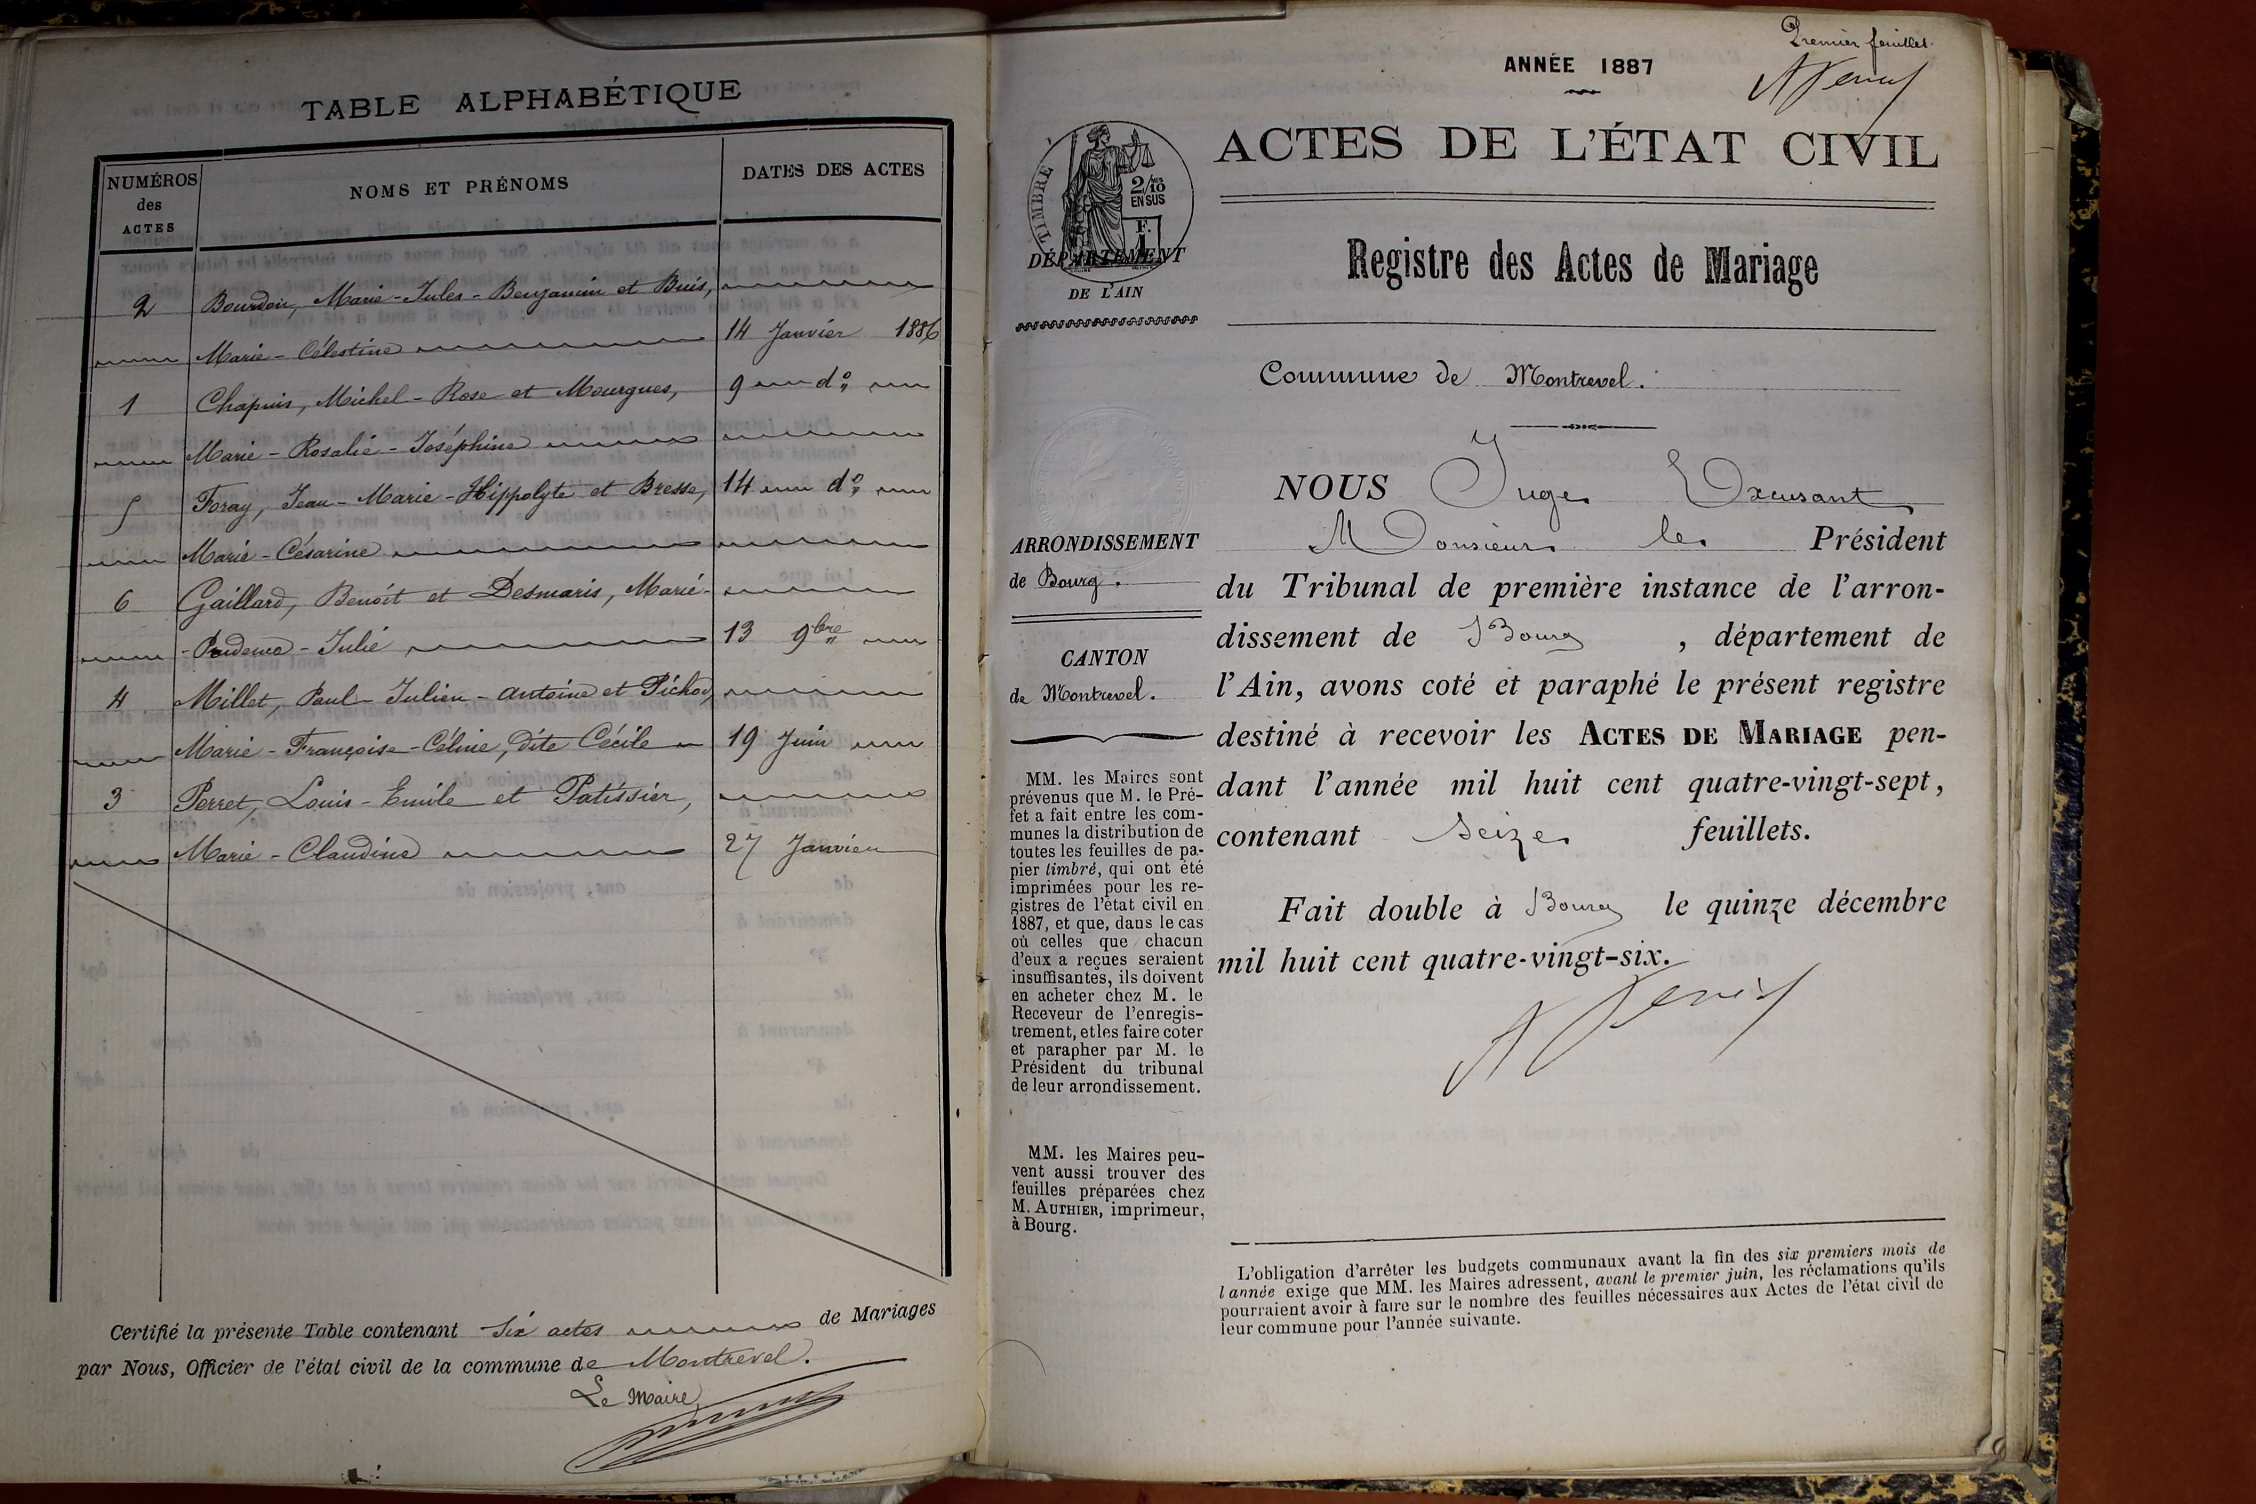 TABLE ALPHABÉTIQUE
NUMÉROS
des
ACTES
NOMS ET PRÉNOMS
DATES DES ACTES
2 Bourdon, Marie-Jules-Benjamin et Buis,
Marie-Célestine 14 Janvier 1886
1 Chapuis, Michel-Rose et Mourgues, 9 do
Marie-Rosalie-Joséphine
5 Foray, Jean-Marie-Hippolyte et Bresse, 14 do
Marie-Césarine
6 Gaillard, Benoît et Desmaris, Marie-
-Prudence-Julie 13 9bre
4 Millet, Paul-Julien-Antoine et Pichod
Marie-Françoise-Céline, dite Cécile 19 Juin
3 Perret, Louis-Emile et Patissier,
Marie-Claudine 27 Janvier
Certifié la présente Table contenant Six actes de Mariages
par Nous, Officier de l'état civil de la commune de Montrevel.
Le Maire,
Premier feuillet.
ANNÉE 1887
ACTES DE L'ÉTAT CIVIL
TIMBRE
2/10
EN SUS
F.
1
DÉPARTEMENT
DE L'AIN
Registre des Actes de Mariage
Commune de Montrevel.
ARRONDISSEMENT
de Bourg.
CANTON
de Montrevel.
MM. les Maires sont
prévenus que M. le Pré-
fet a fait entre les com-
munes la distribution de
toutes les feuilles de pa-
pier timbré, qui ont été
imprimées pour les re-
gistres de l'état civil en
1887, et que, dans le cas
où celles que chacun
d'eux a reçues seraient
insuffisantes, ils doivent
en acheter chez M. le
Receveur de l'enregis-
trement, et les faire coter
et parapher par M. le
Président du tribunal
de leur arrondissement.
MM. les Maires peu-
vent aussi trouver des
feuilles préparées chez
M. AUTHIER, imprimeur,
à Bourg.
NOUS Juge Excusant
Monsieur le Président
du Tribunal de première instance de l'arron-
dissement de Bourg, département de
l'Ain, avons coté et paraphé le présent registre
destiné à recevoir les ACTES DE MARIAGE pen-
dant l'année mil huit cent quatre-vingt-sept,
contenant seize feuillets.
Fait double à Bourg le quinze décembre
mil huit cent quatre-vingt-six.
L'obligation d'arrêter les budgets communaux avant la fin des six premiers mois de
l'année exige que MM. les Maires adressent, avant le premier juin, les réclamations qu'ils
pourraient avoir à faire sur le nombre des feuilles nécessaires aux Actes de l'état civil de
leur commune pour l'année suivante.